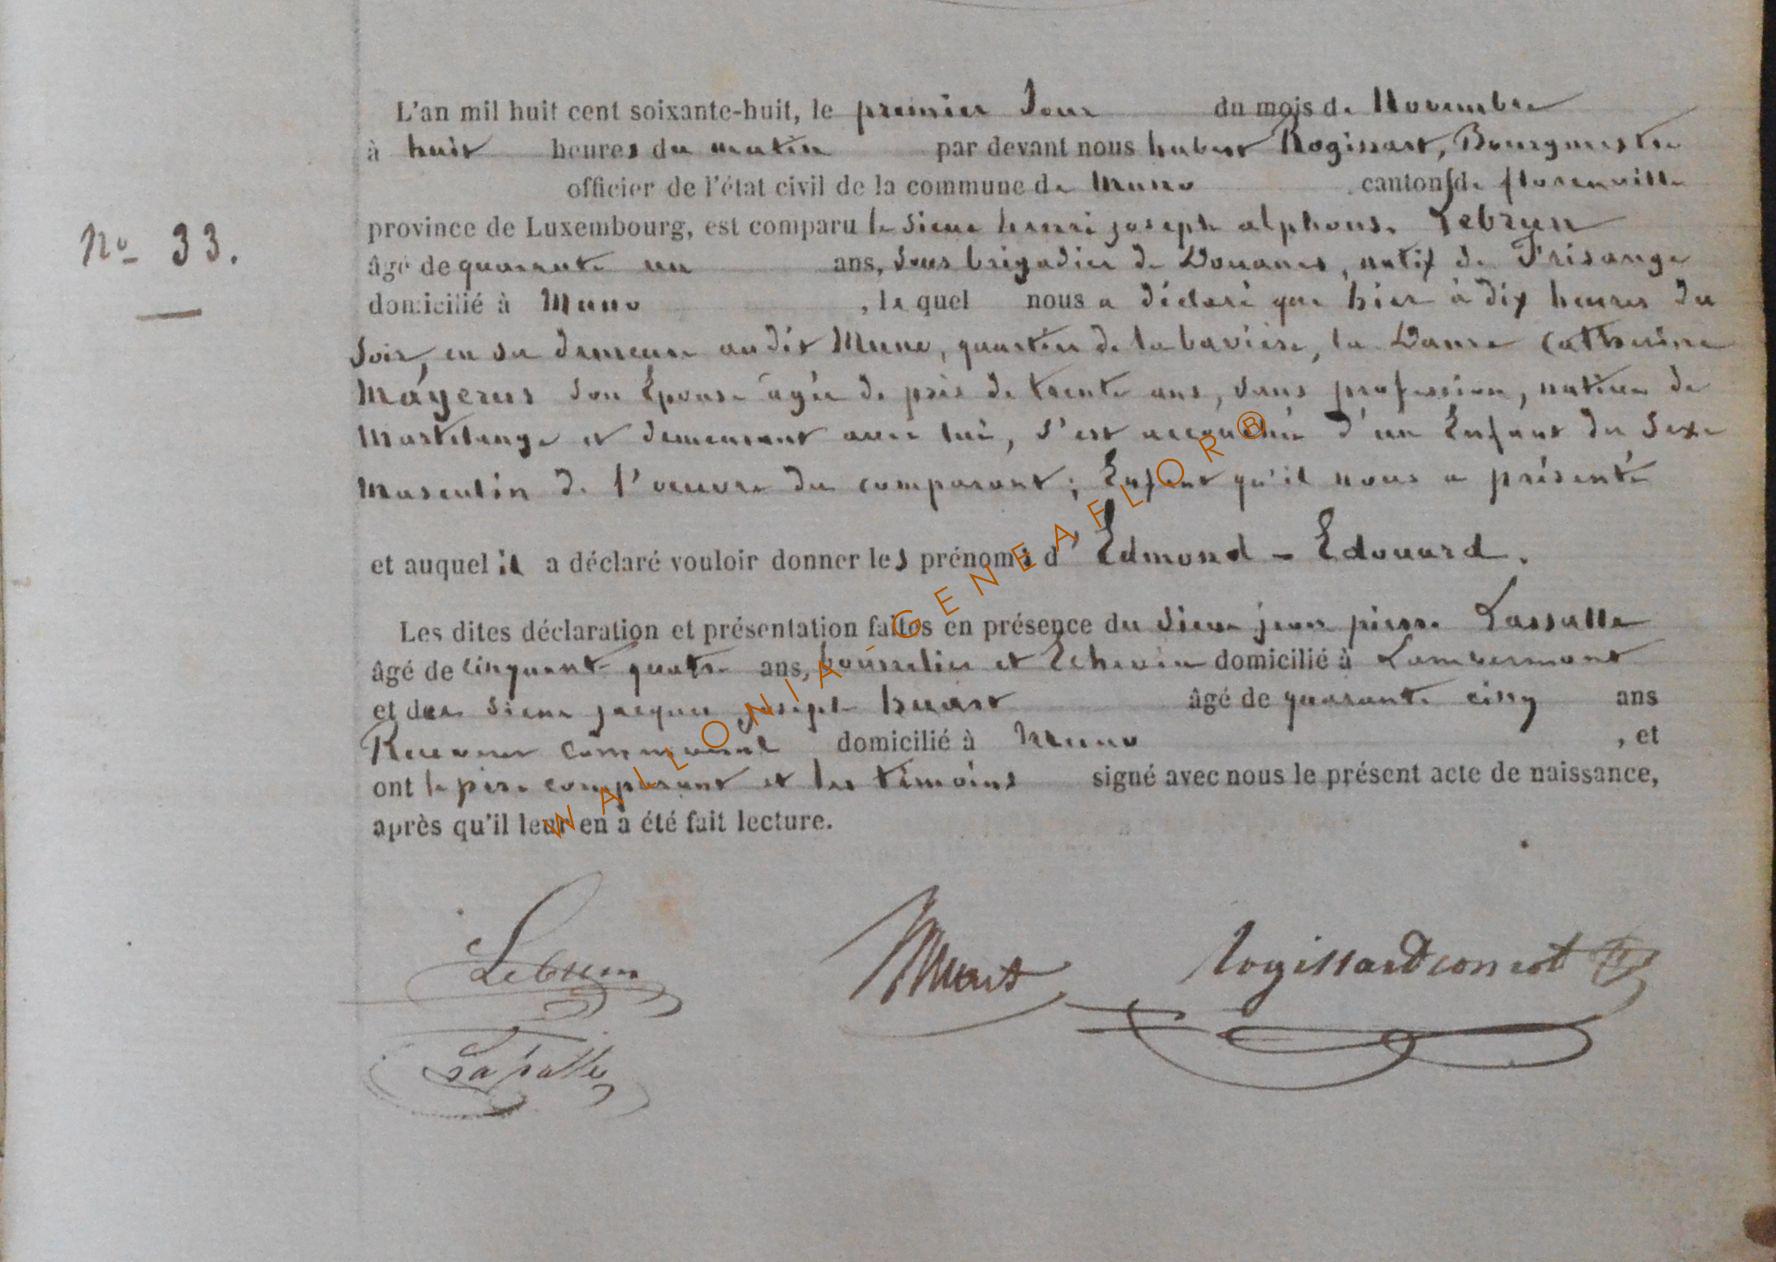 L'an mil huit cent soixante-huit, le premier Jour du mois de Novembre
à huit heures du matin par devant nous hubert Rogissart, Bourgmestre
officier de l'état civil de la commune de Muno canton de florenville
N° 33.
province de Luxembourg, est comparu le Sieur henri joseph alphonse Lebrun
âgé de quarante un ans, Sous brigadier de Douanes, natif de Frisange
domicilié à Muno, le quel nous a déclaré que hier à dix heures du
Soir, en sa demeure audit Muno, quartier de la bavière, la Dame Catherine
Mayerus Son Epouse agée de près de trente ans, Sans profession, native de
Martelange et demeurant avec lui, S'est accouchée d'un Enfant du Sexe
Masculin de l'oeuvre du comparant; Enfant qu'il nous a présenté
et auquel il a déclaré vouloir donner les prénoms d'Edmond - Edouard.
Les dites déclaration et présentation faites en présence du Sieur jean pierre Lassalle
âgé de cinquante quatre ans, bourrelier et Echevin domicilié à Lambermont
et du Sieur jacques joseph huart âgé de quarante cinq ans
Receveur Communal domicilié à Muno, et
ont le père comparant et les témoins signé avec nous le présent acte de naissance,
après qu'il leur en a été fait lecture.
Lebrun Huart Rogissart
Lassalle
WALLONIA - GENEAFLOR®